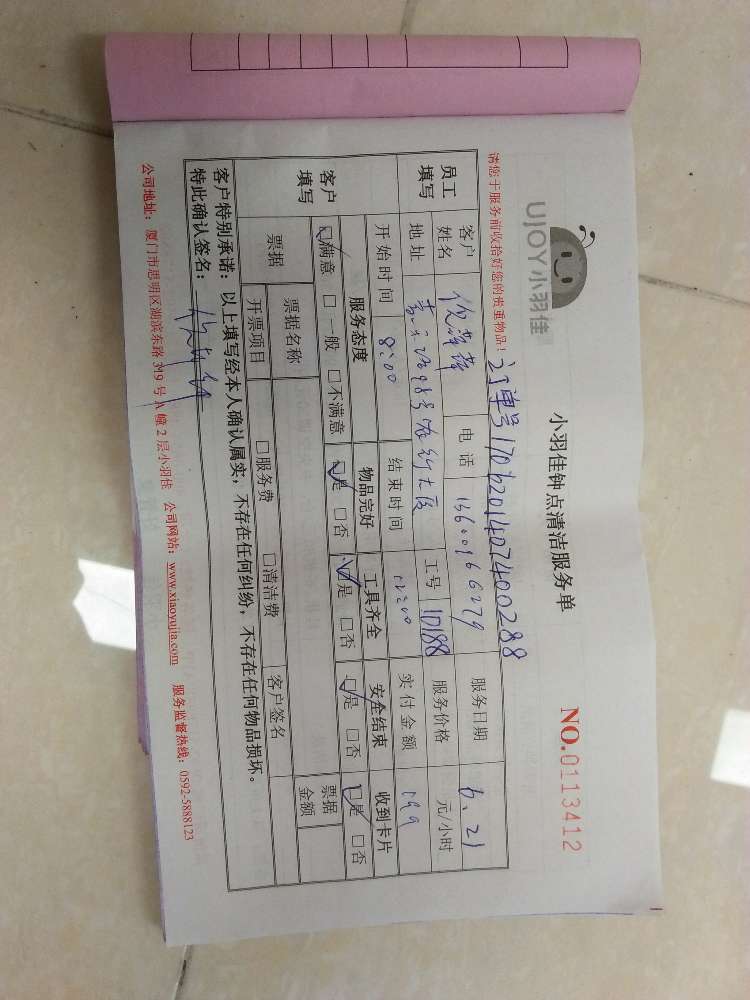 UJOY小羽佳
小羽佳钟点清洁服务单
NO.0113412
请您于服务前收拾好您的贵重物品！
订单号170620140740028 8
员工填写
客户姓名
电话 13600966279
服务日期 6.21
地址
98号
工号 10188
服务价格 元/小时
开始时间 8:00
结束时间 12:00
实付金额 199
客户填写
服务态度 物品完好 工具齐全 安全结束 收到卡片
☑满意 □一般 □不满意 ☑是 □否 ☑是 □否 ☑是 □否 ☑是 □否
票据 票据名称 票据金额
开票项目 □服务费 □清洁费 客户签名
客户特别承诺：以上填写经本人确认属实，不存在任何纠纷，不存在任何物品损坏。
特此确认签名：
公司地址：厦门市思明区湖滨东路319号A幢2层小羽佳 公司网站：www.xiaoyujia.com 服务监督热线：0592-5888123